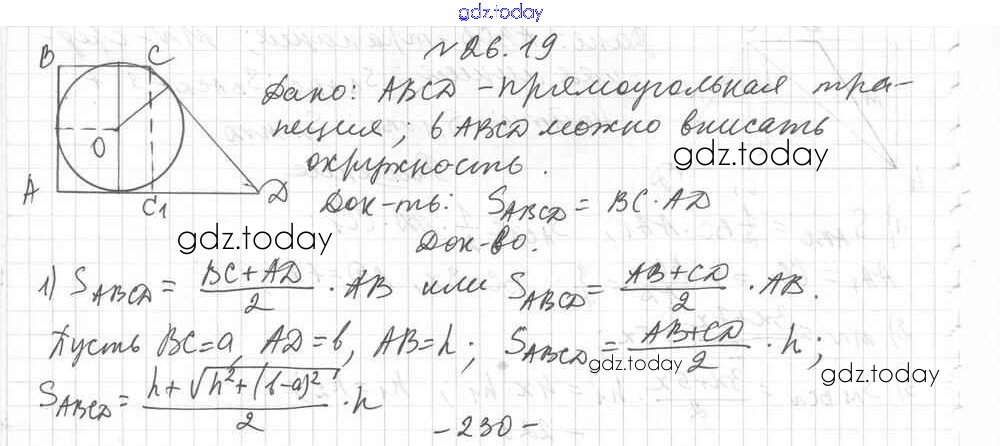 gdz.today
№26.19
B C
Дано: ABCD - прямоугольная тра-
пеция; в ABCD можно вписать
окружность.
gdz.today
O
A C1 D
Док-ть: S_ABCD = BC·AD
gdz.today
Док-во.
1) S_ABCD = (BC+AD)/2 · AB или S_ABCD = (AB+CD)/2 · AB.
Пусть BC=a, AD=b, AB=h; S_ABCD = (AB+CD)/2 · h;
gdz.today
gdz.today
S_ABCD = (h+√(h²+(b-a)²))/2 · h
-230-